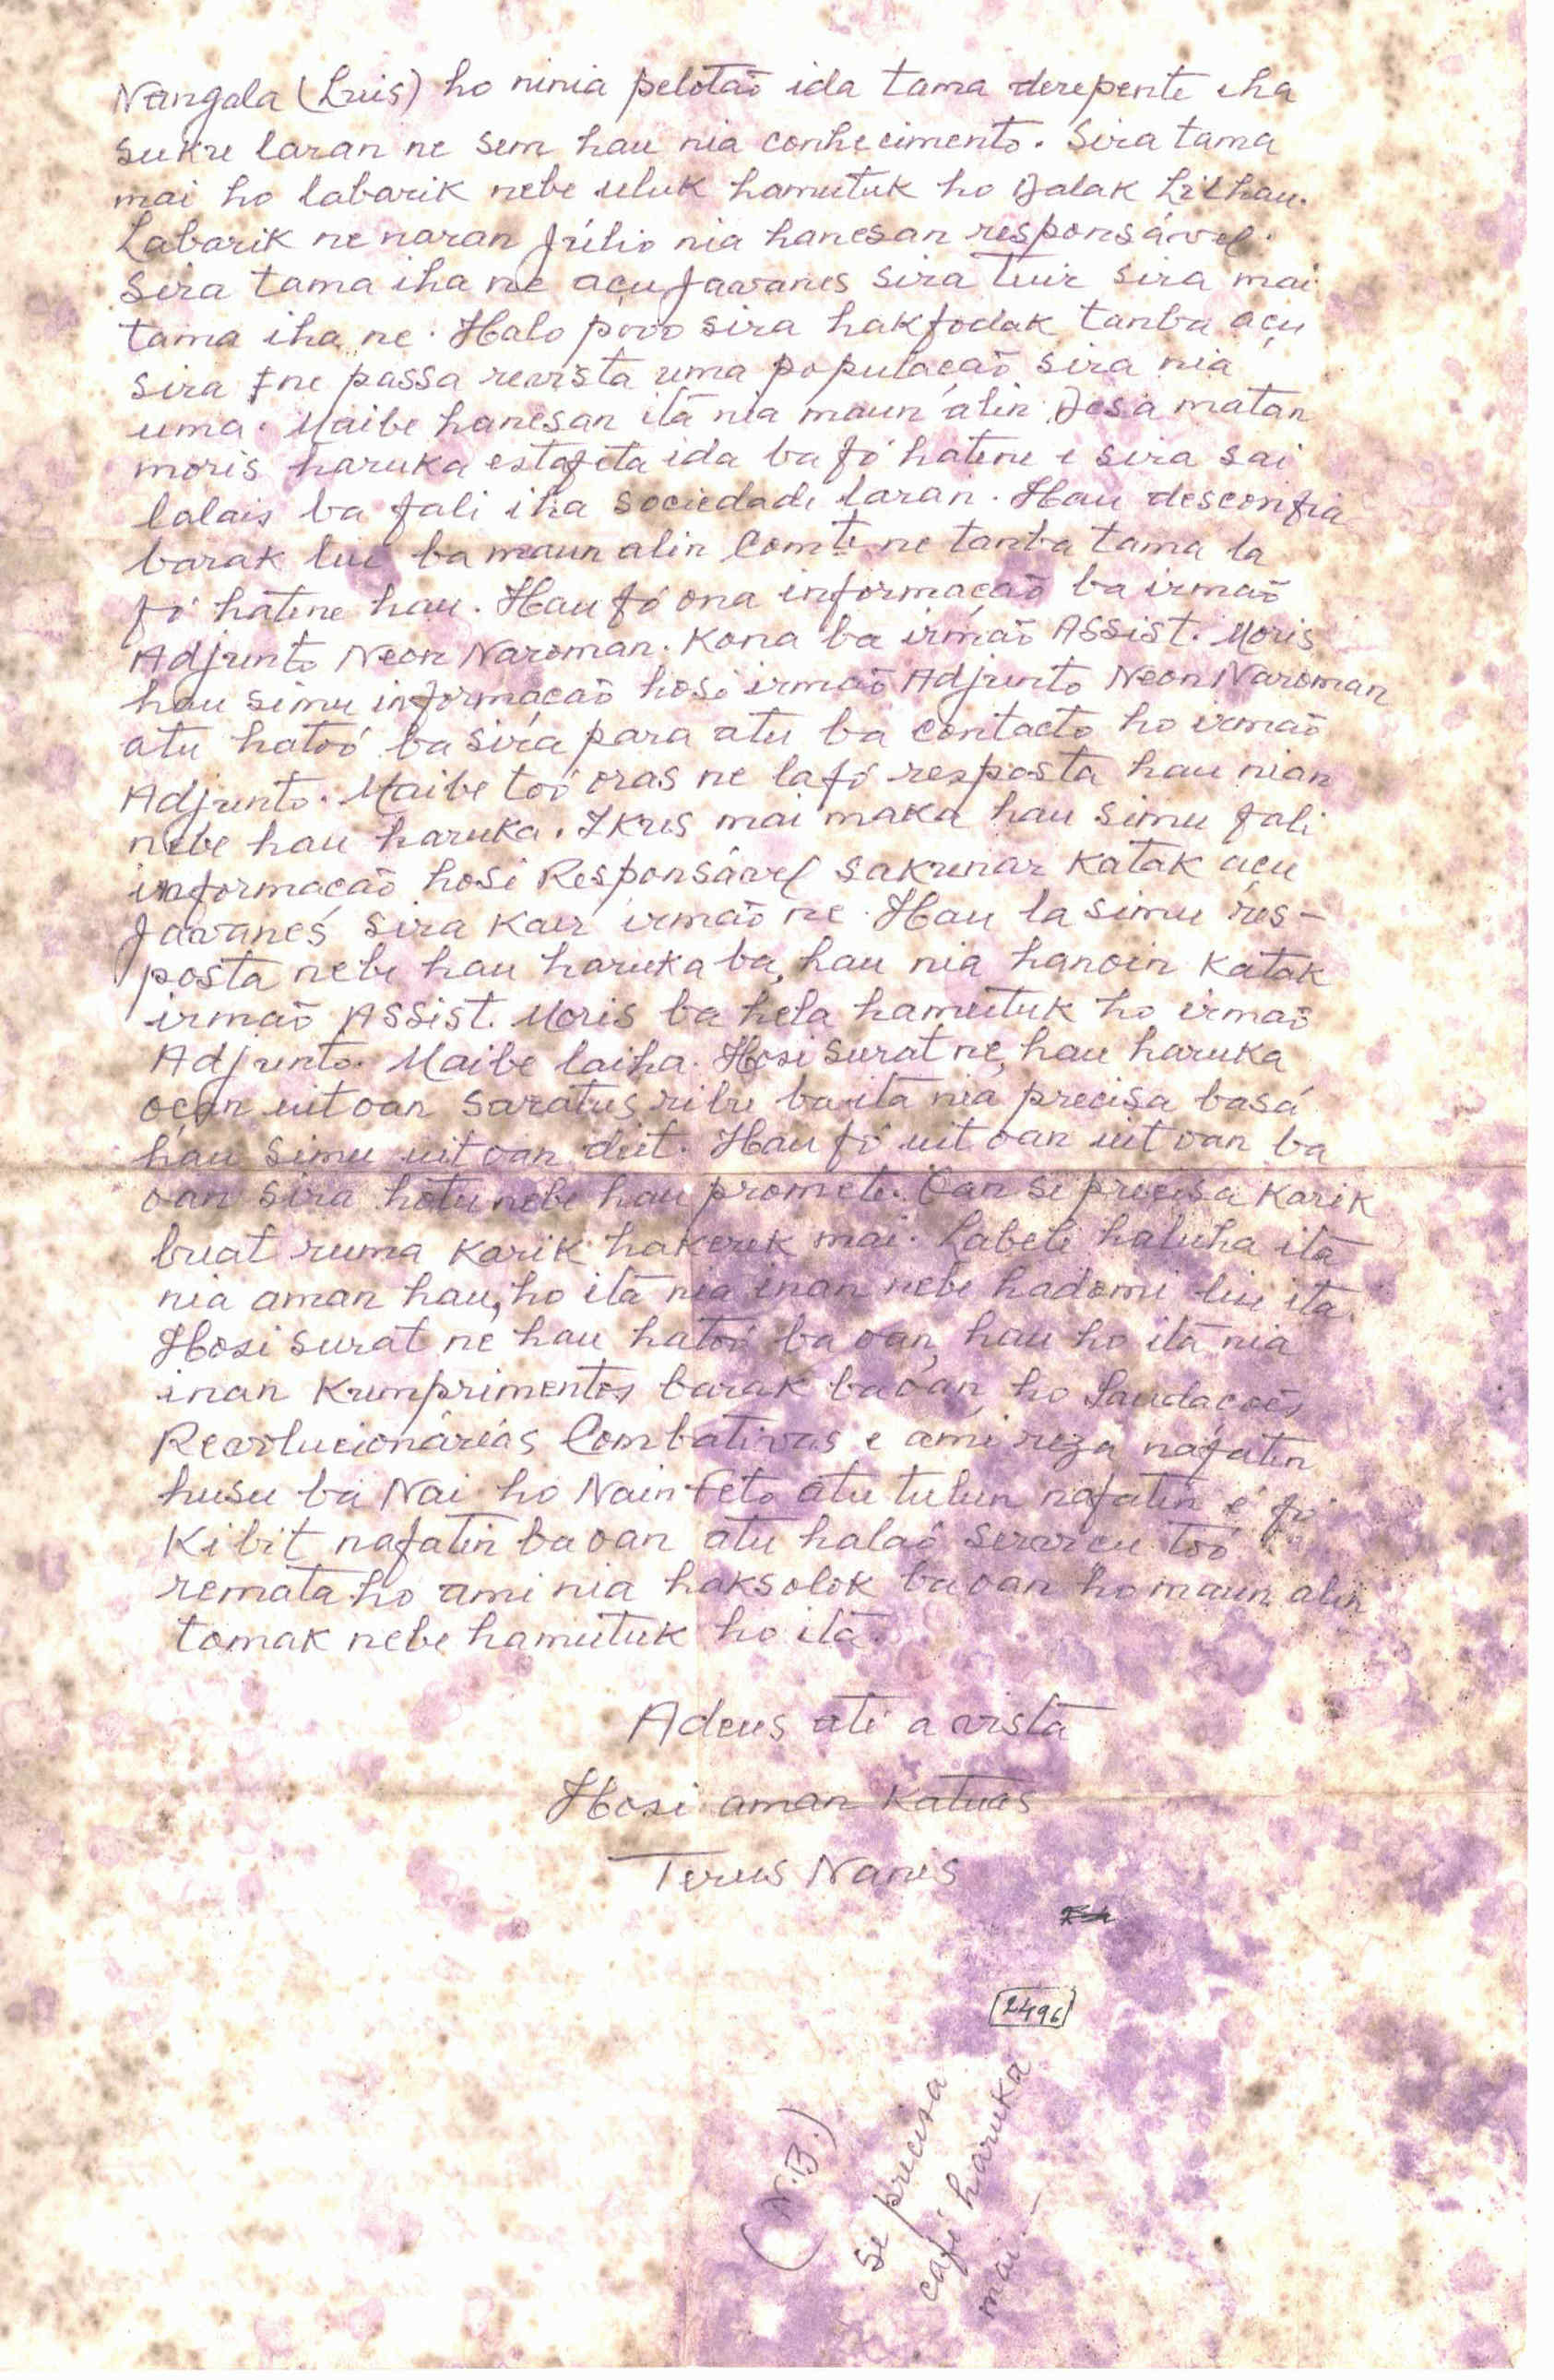 Nangala (Luis) ho ninia pelotaõ ida tama derepente iha
suku laran ne sem hau nia conhecimento. Sira tama
mai ho labarik nebe uluk hamutuk ho Dalak Lilhau.
Labarik ne naran Júlio nia hanesan responsável.
Sira tama iha ne açu Javanes sira tuir sira mai
tama iha ne. Halo povo sira hakfodak tanba açu
sira ne passa revista uma populaçaõ sira nia
uma. Maibe hanesan itā nia maun alin Josa matan
moris haruka estafeta ida ba fó hatene e sira sai
lalais ba fali iha sociedade laran. Hau desconfia
barak liu ba maun alin Comte ne tanba tama la
fó hatene hau. Hau fó ona informaçaõ ba irmaõ
Adjunto Neon Naroman. Kona ba irmaõ Assist. Moris
hau simu informaçaõ hosi irmaõ Adjunto Neon Naroman
atu hatoó ba sira para atu ba contacto ho irmaõ
Adjunto. Maibe toó oras ne la fó resposta hau nian
nebe hau haruka. Ikus mai maka hau simu fali
informaçaõ hosi Responsável Sakunar katak açu
Javanes sira kair irmaõ ne. Hau la simu res-
posta nebe hau haruka ba, hau nia hanoin katak
irmaõ Assist. Moris ba hela hamutuk ho irmaõ
Adjunto. Maibe laiha. Hosi surat ne, hau haruka
oçan uitoan saratus ribu ba itā nia precisa basá
hau simu uitoan deit. Hau fó uitoan uitoan ba
oan sira hotu nebe hau promete. Oan se precisa karik
buat ruma karik hakerek mai. Labele haluha itā
nia aman hau, ho itā nia inan nebe hadomi liu itā.
Hosi surat ne hau hatoó ba oan, hau ho itā nia
inan kumprimentos barak ba oan, ho Saudaçoēs
Revolucionárias Combativas e ami reza nafatin
husu ba Nai ho Nain Feto atu tulun nafatin e fó
kibit nafatin ba oan atu halaó serviçu toó
remata ho ami nia haksolok ba oan ho maun alin
tomak nebe hamutuk ho itā.
Adeus até a vista
Hosi aman katuas
Terus Nanis
2496
(N.B.)
Se precisa
café haruka
mai.-